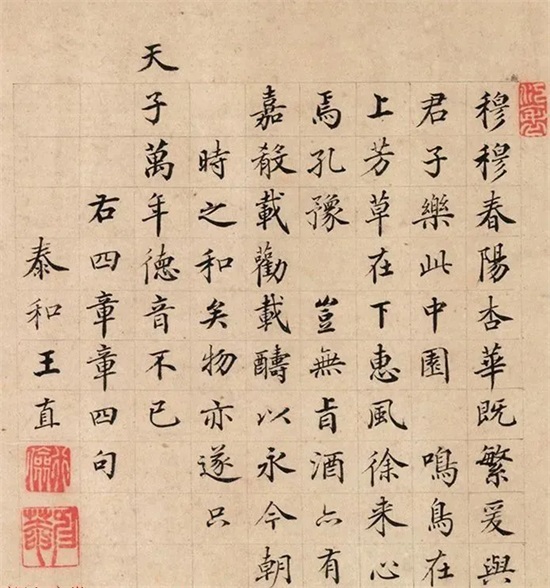 穆穆春陽杏華既繁爰與
君子樂此中園 鳴鳥在
上芳草在下惠風徐来心
焉孔豫 豈無旨酒亦有
嘉殽載勸載醻以永今朝
時之和矣物亦遂只
天子萬年德音不已
右四章章四句
泰和王直